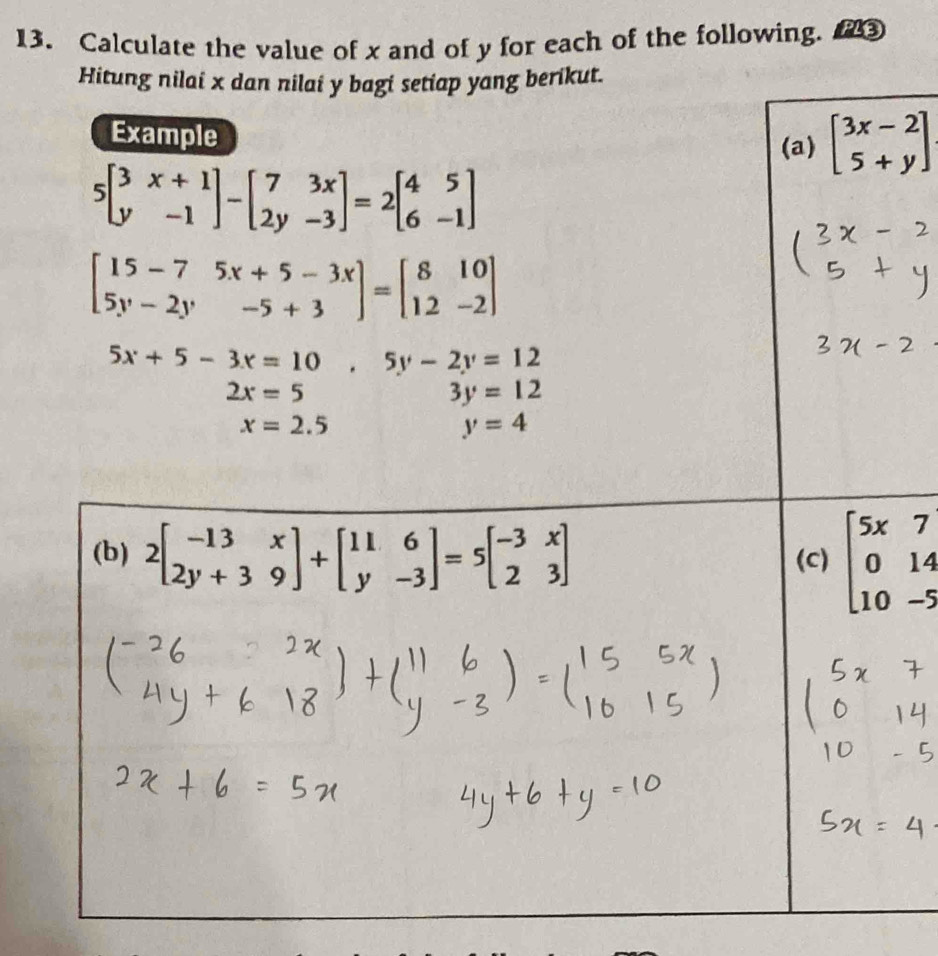 13. Calculate the value of x and of y for each of the following. PL3
Hitung nilai x dan nilai y bagi setiap yang berikut.
Example
5[3 x + 1; y −1] − [7 3x; 2y −3] = 2[4 5; 6 −1]
[15 − 7 5x + 5 − 3x; 5y − 2y −5 + 3] = [8 10; 12 −2]
5x + 5 − 3x = 10 , 5y − 2y = 12
2x = 5 3y = 12
x = 2.5 y = 4
(a) [3x − 2; 5 + y]
(3x − 2; 5 + y
3x − 2
(b) 2[−13 x; 2y + 3 9] + [11 6; y −3] = 5[−3 x; 2 3]
(−26 2x; 4y + 6 18) + (11 6; y −3) = (15 5x; 10 15)
2x + 6 = 5x 4y + 6 + y = 10
(c) [5x 7; 0 14; 10 −5
(5x 7; 0 14; 10 −5
5x = 4